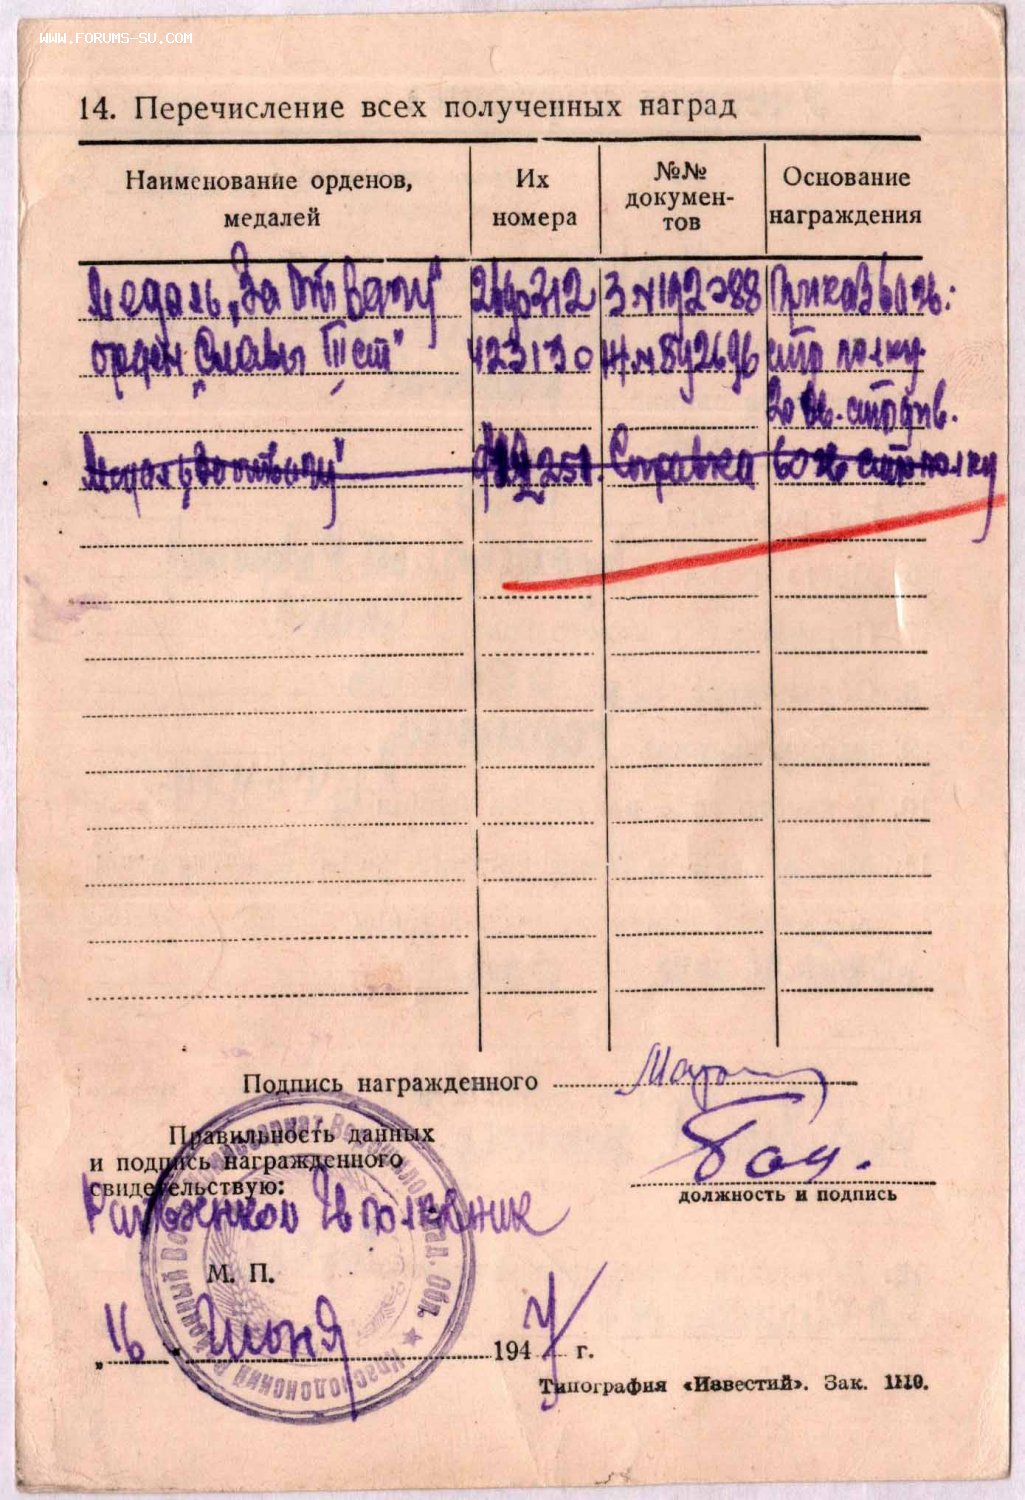 WWW.FORUMS-SU.COM
14. Перечисление всех полученных наград
Наименование орденов, медалей
Их номера
№№ докумен-тов
Основание награждения
Медаль „За Отвагу“ 2490312 З № 192788 Приказ
орден „Славы III ст“ 423130 № 892696 стр полку
20 гв. стр див.
Медаль За отвагу“ Справка стр полку
Подпись награжденного
Правильность данных
и подпись награжденного
свидетельствую:
должность и подпись
Гв полковник
М. П.
„ 16 “ Июня 1947 г.
Краснодонский Районный Военный Комиссариат Ворошиловград. Обл.
Типография «Известий». Зак. 1110.